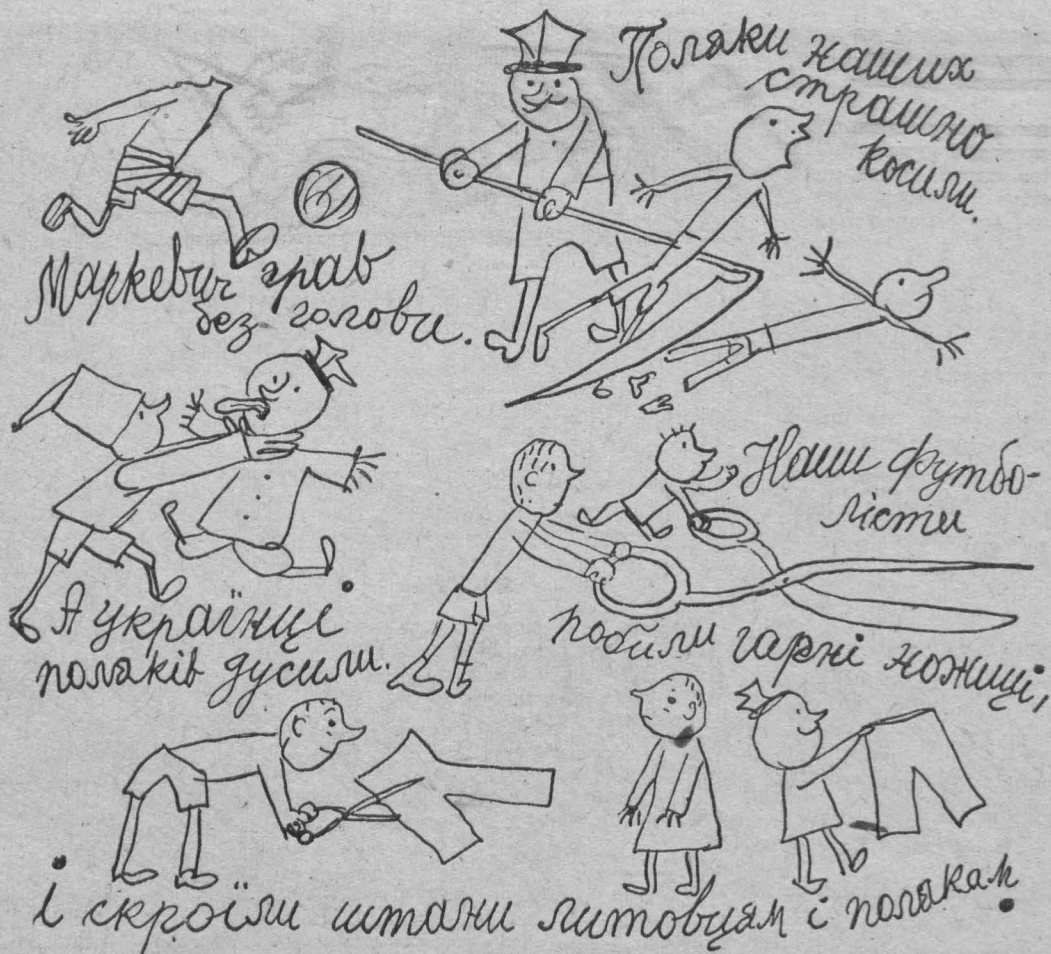 Маркевич грав
без голови.
Поляки наших
страшно
косили.
А українці
поляків дусили.
Наши футбо-
лісти
побили гарні ножиці,
і скроїли штани литовцям і полякам.